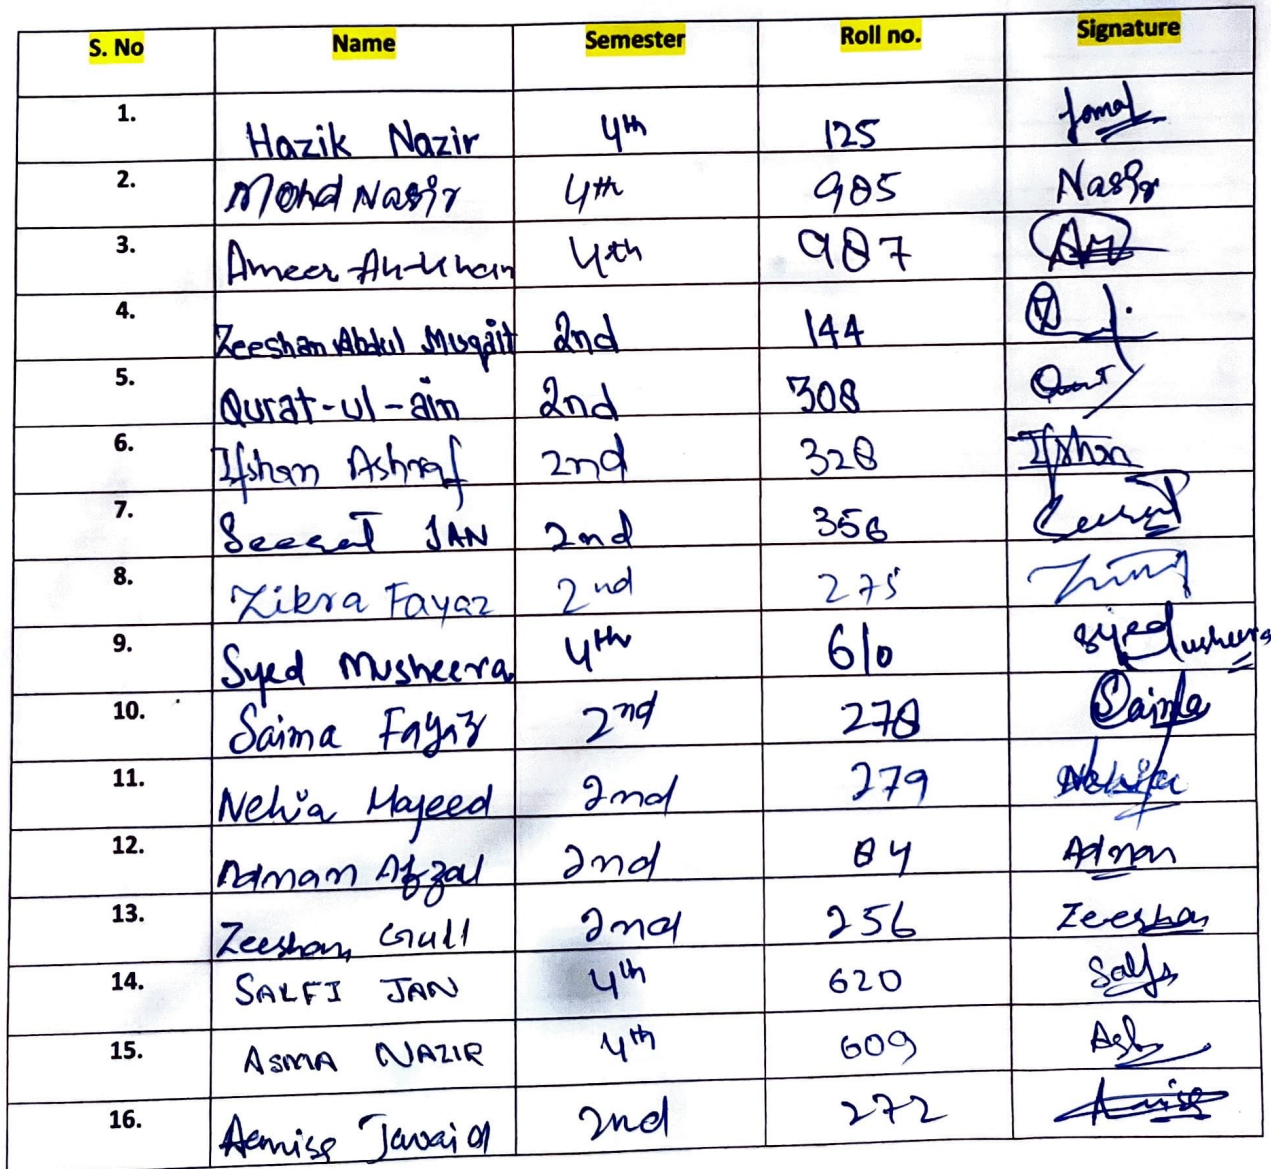 S. No Name Semester Roll no. Signature
1. Hazik Nazir 4th 125
2. Mohd Nasir 4th 985 Nasir
3. Ameer Ali Khan 4th 987
4. Zeeshan Abdul Muqait 2nd 144
5. Qurat-ul-ain 2nd 308
6. Ifshan Ashraf 2nd 328 Ifshan
7. Seerat JAN 2nd 356 Seerat
8. Zikra Fayaz 2nd 275
9. Syed Musheera 4th 610 Syed Musheera
10. Saima Fayaz 2nd 278 Saima
11. Majeed 2nd 279
12. Adnan Afzal 2nd 84 Adnan
13. Zeeshan Gull 2nd 256 Zeeshan
14. SALFI JAN 4th 620 Salfi
15. ASMA NAZIR 4th 609
16. Javaid 2nd 272